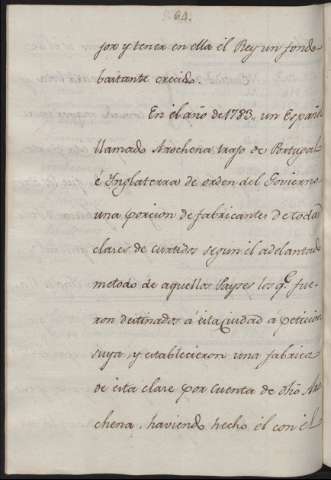 64.
jor y tener en ella el Rey un fondo
bastante crecido.
En el año de 1783, un Español
llamado Arochena trajo de Portugal
é Inglaterra de orden del Govierno
una porcion de fabricantes de todas
clases de curtidos segun el adelantado
metodo de aquellos Payses los q.e fue-
ron destinados á esta Ciudad a peticion
suya, y establecieron una fabrica
de esta clase por cuenta de dho Aro
chena, haviendo hecho él con el